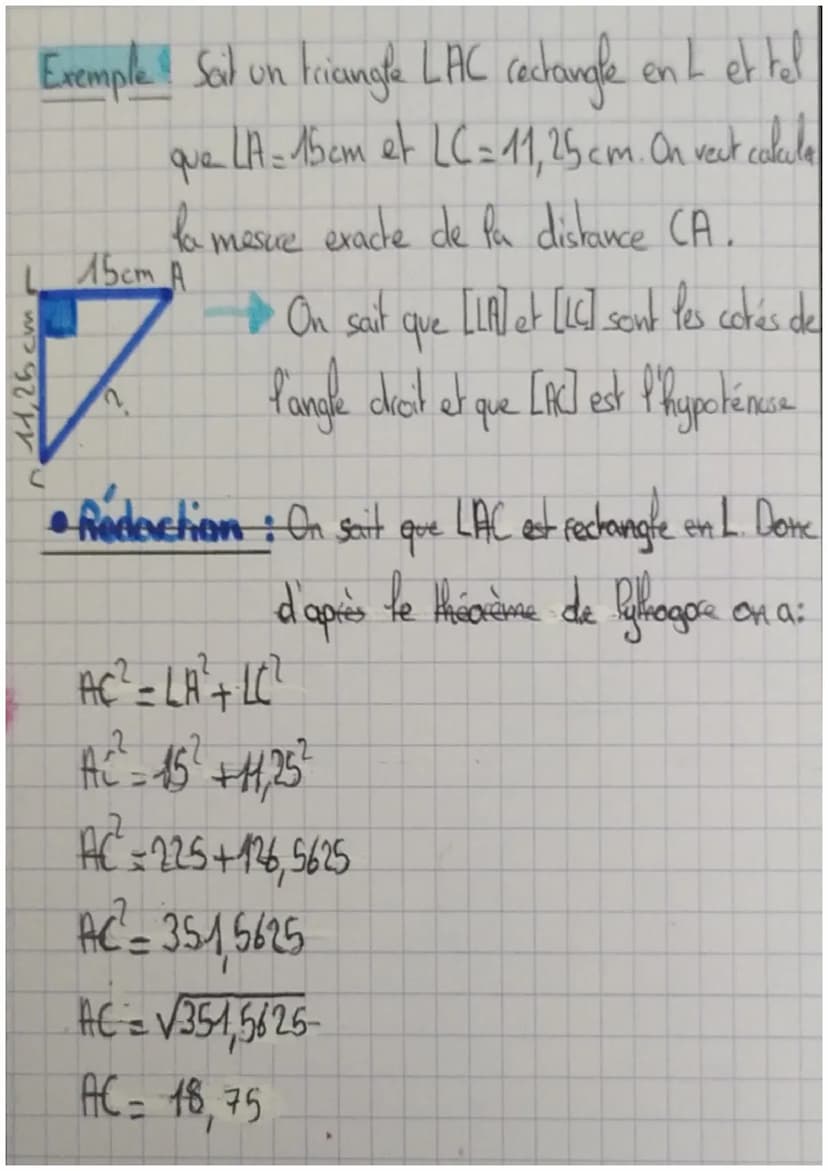 Exemple: Soit un triangle LAC rectangle en L et tel
que LA=15cm et LC=11,25cm. On veut calculer
la mesure exacte de la distance CA.
L 15cm A
11,25cm
?
C
→ On sait que [LA] et [LC] sont les cotés de
l'angle droit et que [AC] est l'hypoténuse
• Rédaction : On sait que LAC est rectangle en L. Donc
d'après le théorème de Pythagore on a:
AC²=LA²+LC²
AC²=15²+11,25²
AC²=225+126,5625
AC²=351,5625
AC=√351,5625
AC=18,75